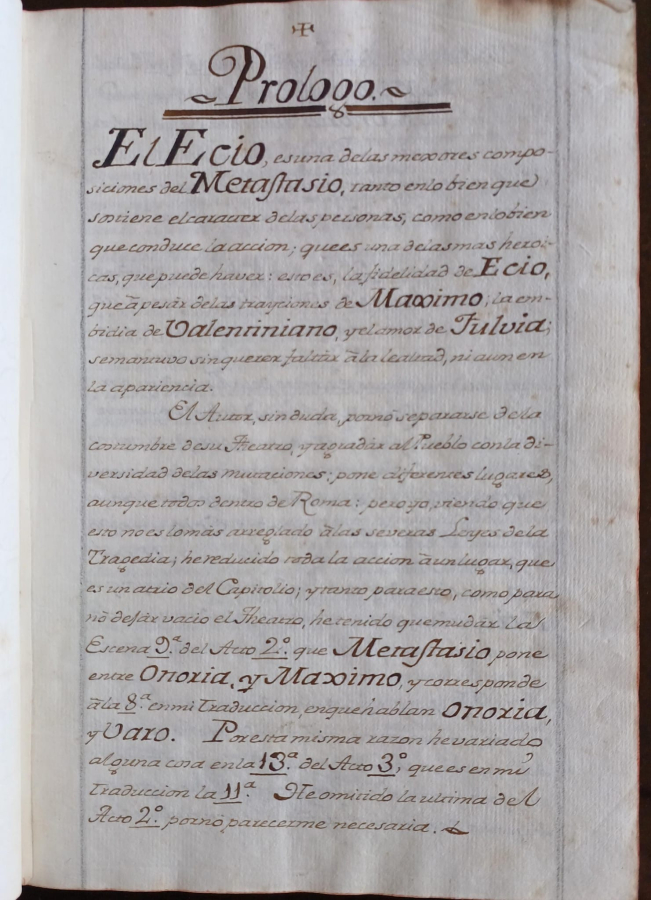 Prologo.
El Ecio, es una de las mexores compo-
siciones del Metastasio, tanto en lo bien que
sostiene el caracter de las personas, como en lo bien
que conduce la accion; que es una de las mas heroi-
cas, que puede haver: esto es, la fidelidad de Ecio,
que â pesàr de las trayciones de Maximo, la em-
bidia de Valentiniano, y el amor de Fulvia;
se mantuvo sin querer faltàr â la lealtad, ni aun en
la apariencia.
El Autor, sin duda, por nô separarse de la
costumbre de su Theatro, y agradàr al Pueblo con la di-
versidad de las mutaciones; pone diferentes lugares,
aunque todos dentro de Roma: pero yo, viendo que
esto no es lo màs arreglado â las severas Leyes de la
Tragedia; he reducido toda la accion â un lugar, que
es un atrio del Capitolio; y tanto para esto, como para
nô dexàr vacio el Theatro, he tenido que mudàr la
Escena 9.ª del Acto 2.º que Metastasio pone
entre Onoria, y Maximo, y corresponde
â la 8.ª en mi Traduccion, en que hablan Onoria,
y Varo. Por esta misma razon he variado
alguna cosa en la 13.ª del Acto 3.º, que es en mi
Traduccion la 11.ª He omitido la ultima del
Acto 2.º por nô parecerme necesaria.